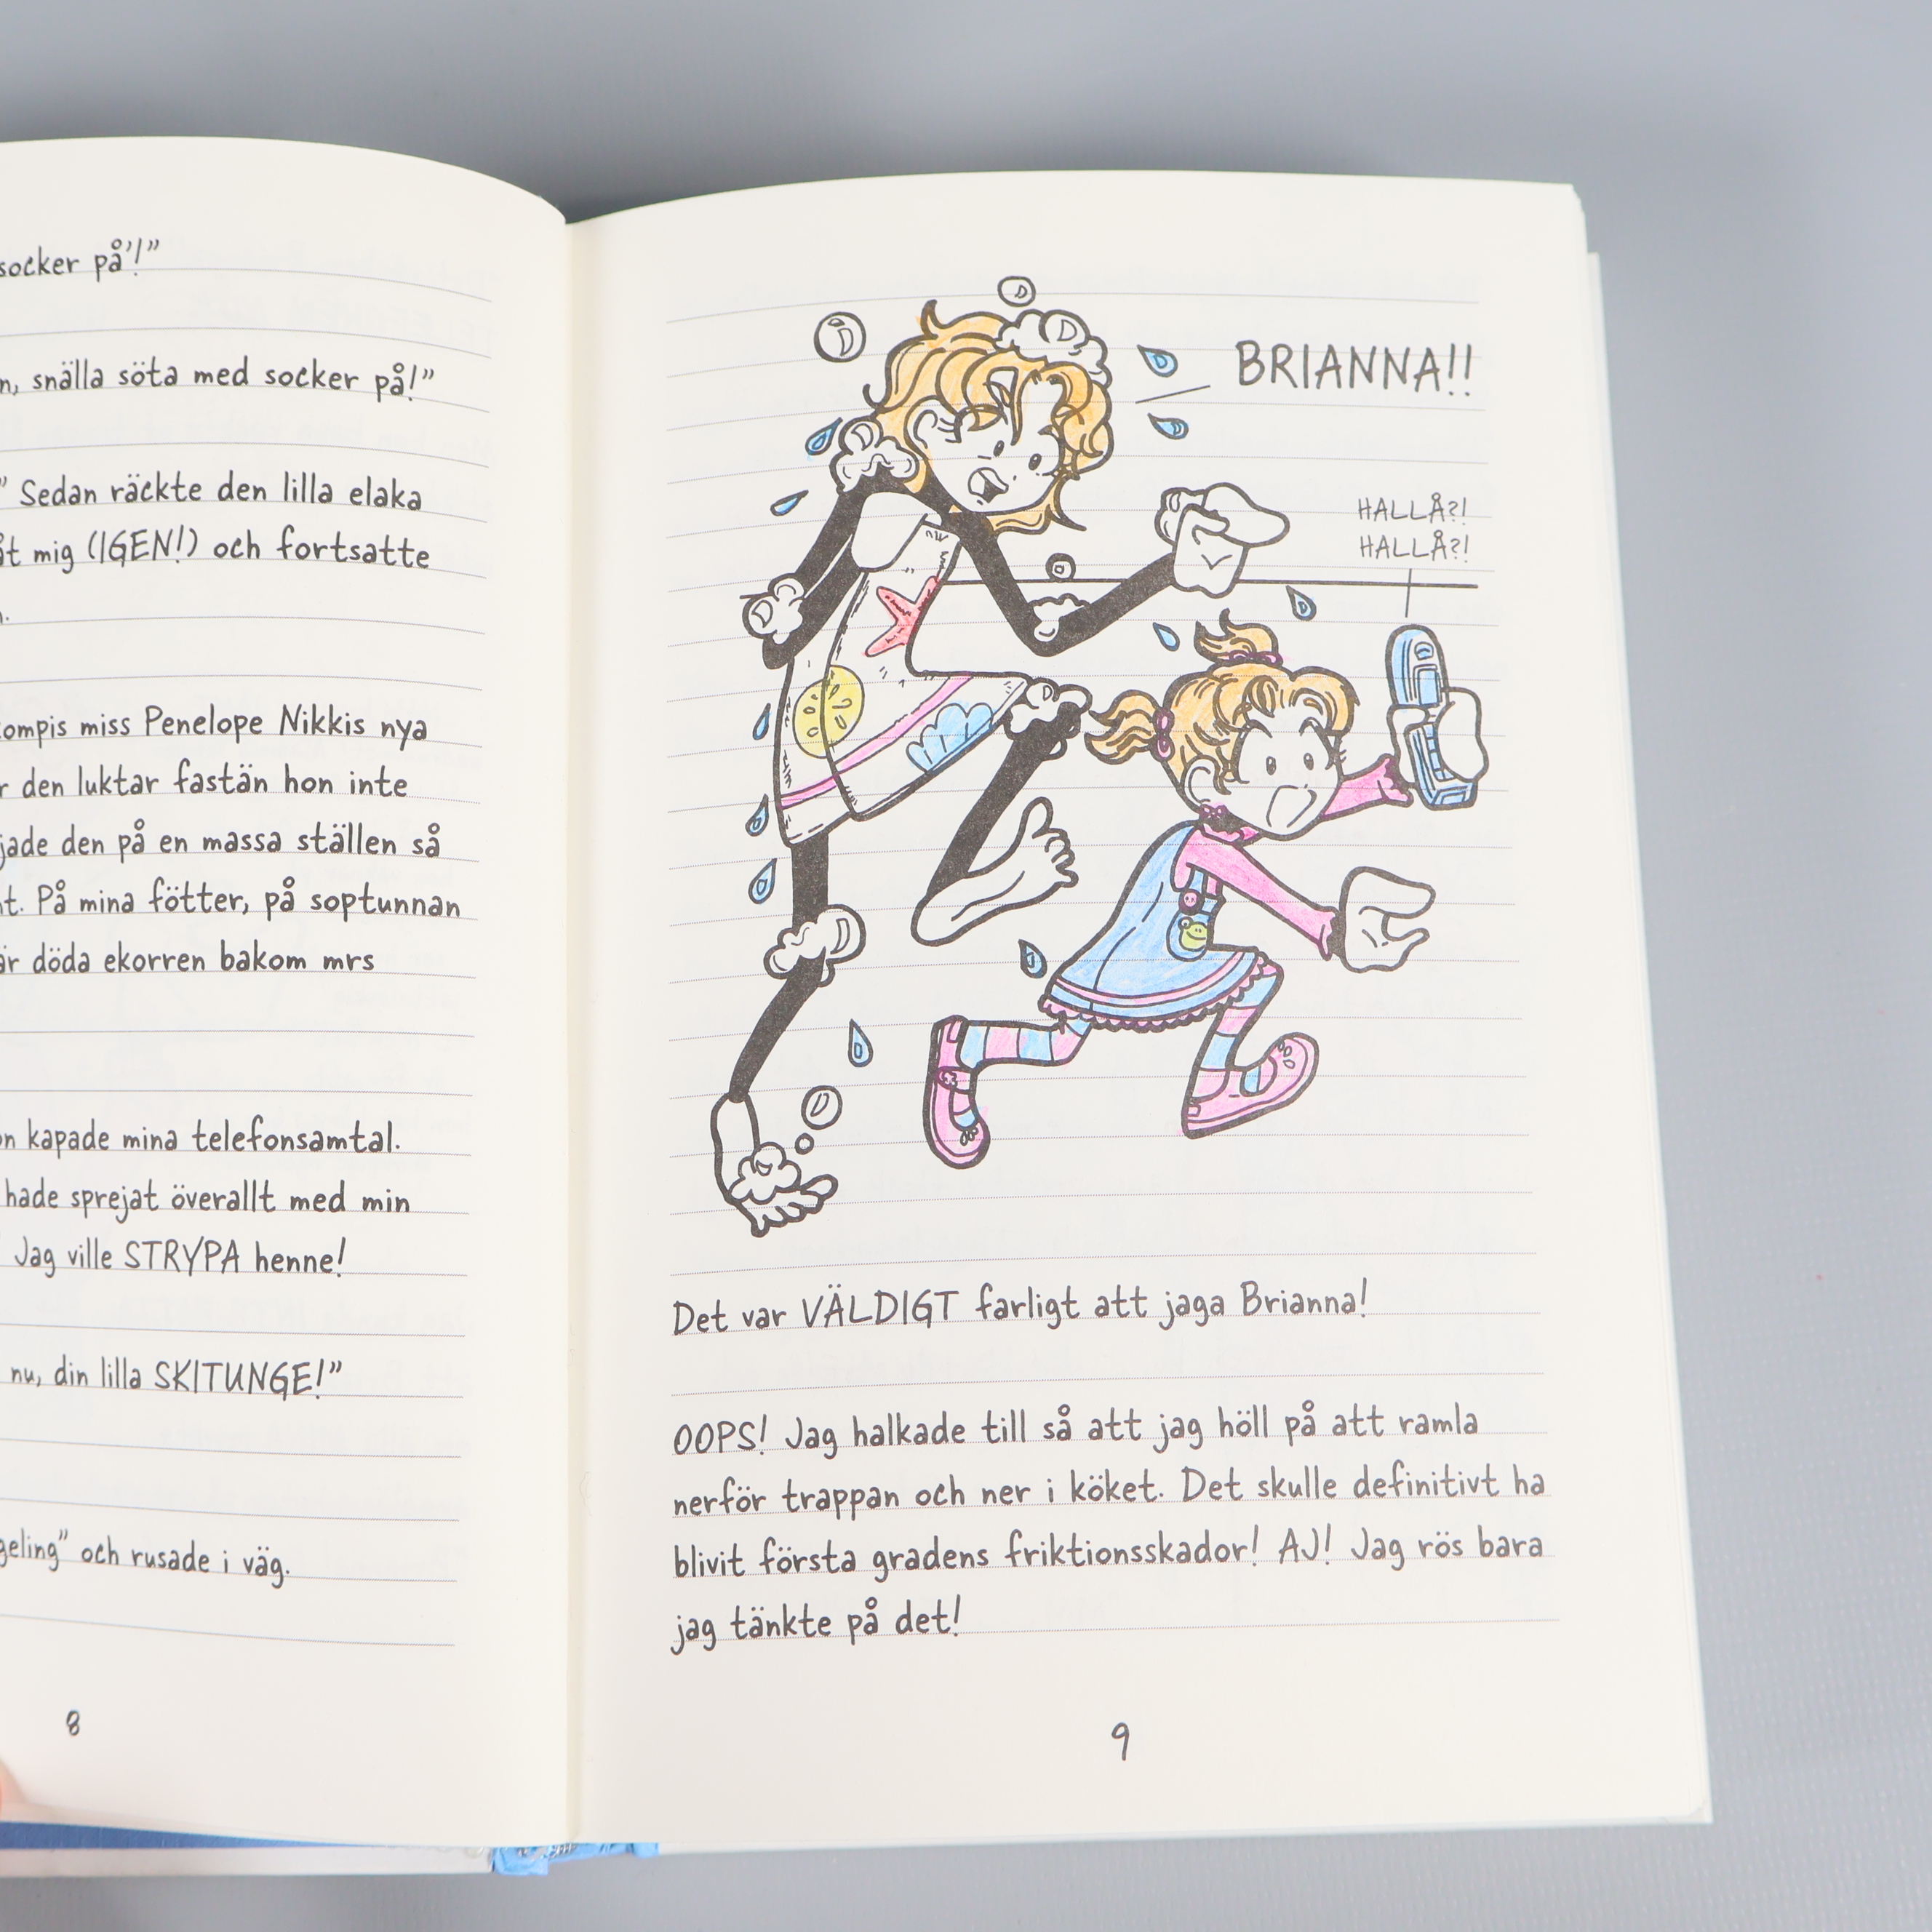 socker på'!”
snälla söta med socker på!”
” Sedan räckte den lilla elaka
mig (IGEN!) och fortsatte
miss Penelope Nikkis nya
den luktar fastän hon inte
den på en massa ställen så
På mina fötter, på soptunnan
döda ekorren bakom mrs
kapade mina telefonsamtal.
hade sprejat överallt med min
Jag ville STRYPA henne!
nu, din lilla SKITUNGE!”
och rusade i väg.
8
BRIANNA!!
HALLÅ?!
HALLÅ?!
Det var VÄLDIGT farligt att jaga Brianna!
OOPS! Jag halkade till så att jag höll på att ramla
nerför trappan och ner i köket. Det skulle definitivt ha
blivit första gradens friktionsskador! AJ! Jag rös bara
jag tänkte på det!
9